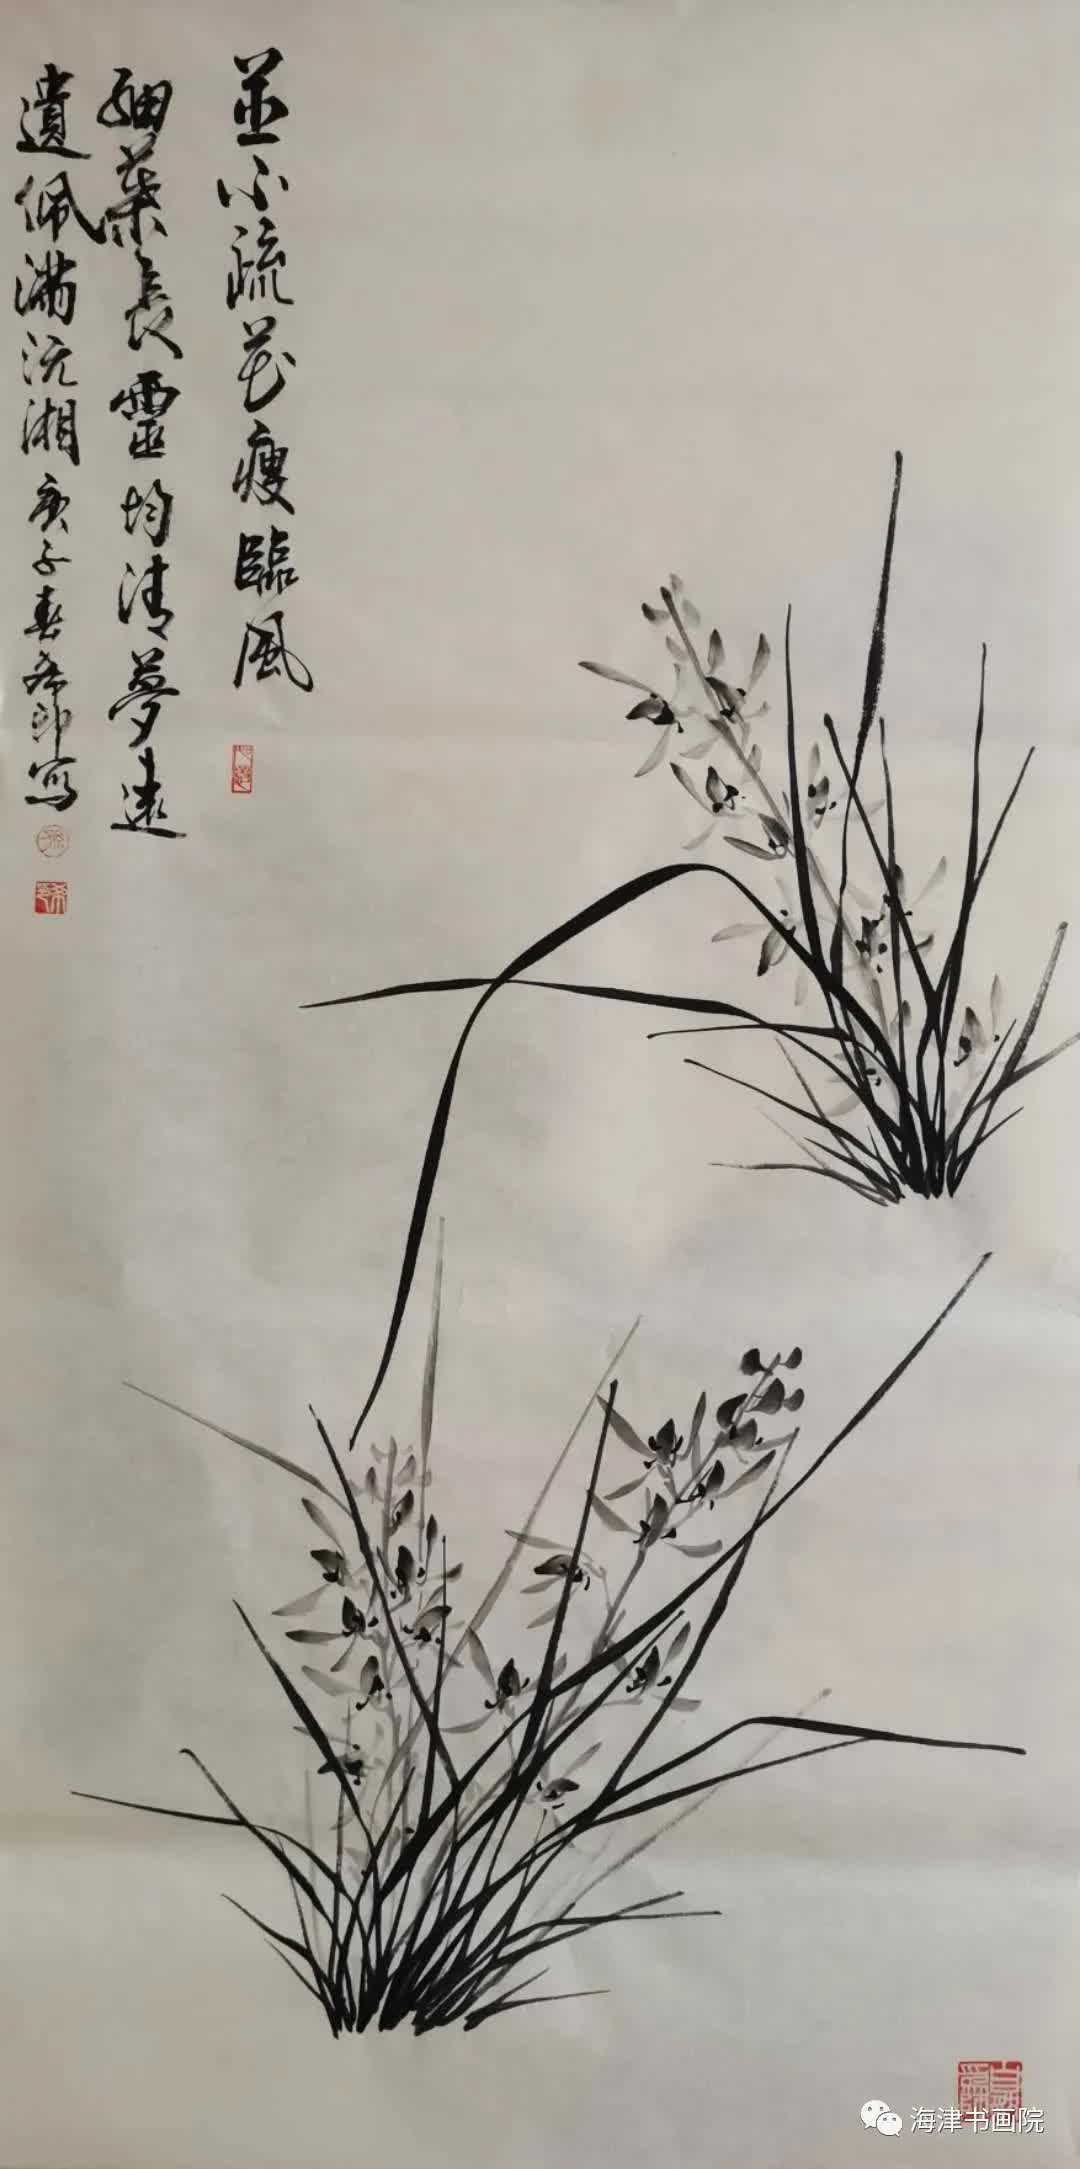 並小疏花瘦臨風
細葉長靈均清夢遠
遺佩滿沅湘庚子春希印寫
海津书画院